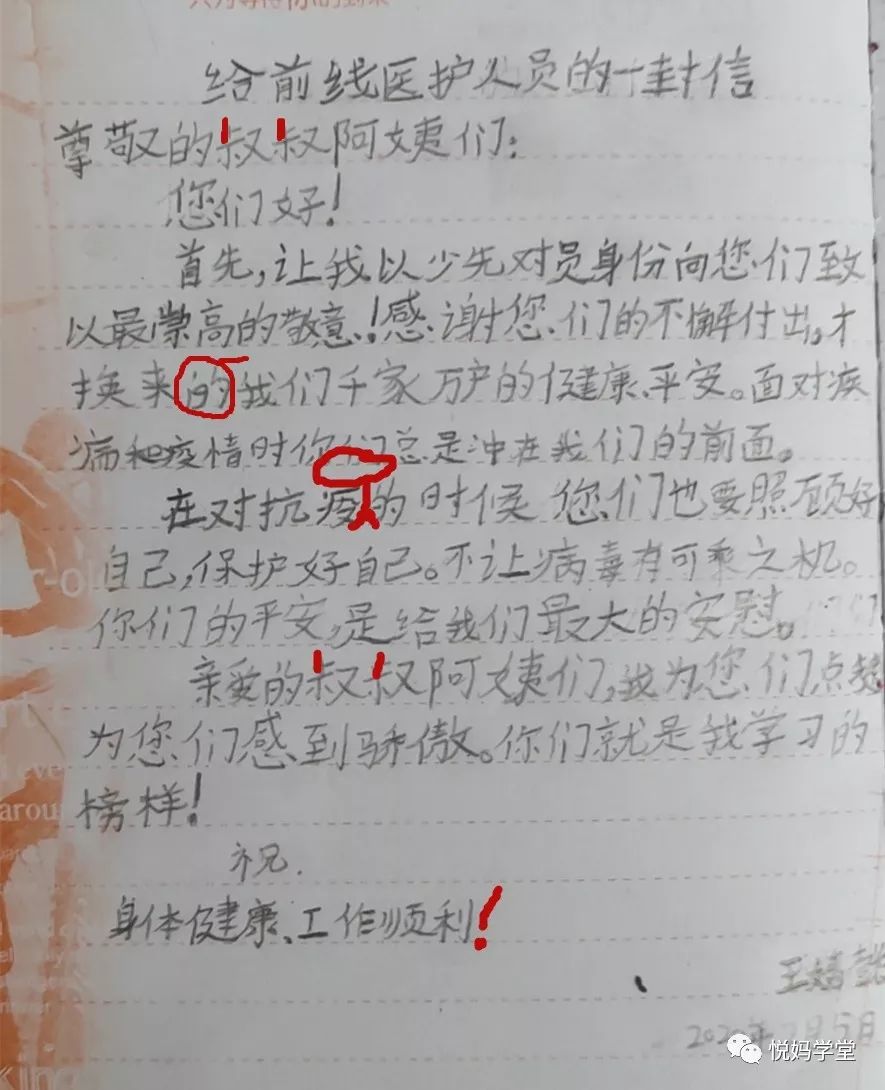 给前线医护人员的一封信
尊敬的叔叔阿姨们:
您们好!
首先,让我以少先对员身份向您们致
以最崇高的敬意!感谢您们的不懈付出,才
换来的我们千家万户的健康、平安。面对疾
病和疫情时你们总是冲在我们的前面。
在对抗疫的时候 您们也要照顾好
自己,保护好自己。不让病毒有可乘之机。
你们的平安,是给我们最大的安慰。
亲爱的叔叔阿姨们,我为您们点赞
为您们感到骄傲。你们就是我学习的
榜样!
祝.
身体健康、工作顺利!
王
2020年 月5日
悦妈学堂
aroun
king